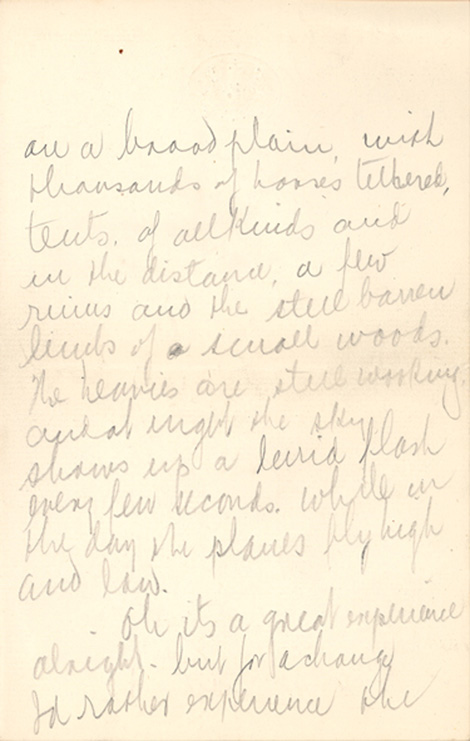 on a broad plain, with
thousands of horses tethered,
tents, of all kinds and
in the distance, a few
ruins and the still barren
limbs of a small woods.
The heavies are still working,
and at night the sky
shows up a lurid flash
every few seconds. While in
the day the planes fly high
and low.
Oh its a great experience
alright - but for a change
I'd rather experience the